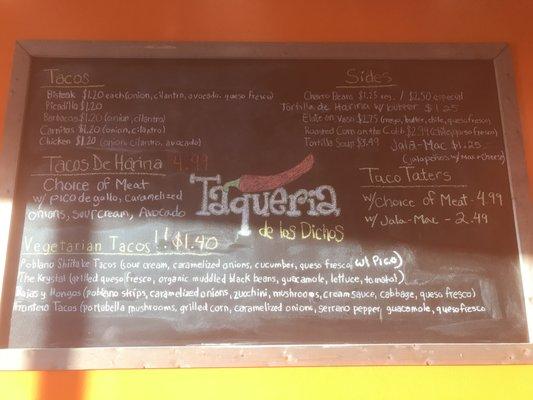 Tacos
Bisteak $1.20 each (onion, cilantro, avocado, queso fresco)
Picadillo $1.20
Barbacoa $1.20 (onion, cilantro)
Carnitas $1.20 (onion, cilantro)
Chicken $1.20 (onion, cilantro, avocado)
Tacos De Harina 4.99
Choice of Meat
w/pico de gallo, caramelized
onions, sour cream, Avocado
Sides
Charro Beans $1.25 reg. / $2.50 especial
Tortilla de Harina w/butter $1.25
Elote en Vaso $2.75 (mayo, butter, chile, queso fresco)
Roasted Corn on the Cobb $2.99 (chile, queso fresco)
Tortilla Soup $3.49
Jala-Mac $1.25
(jalapeños w/mac & cheese)
Taco Taters
w/Choice of Meat - 4.99
w/ Jala-Mac - 2.49
Taqueria
de los Dichos
Vegetarian Tacos!! $1.40
Poblano Shiitake Tacos (sour cream, caramelized onions, cucumber, queso fresco, w/ Pico)
The Krystal (grilled queso fresco, organic muddled black beans, guacamole, lettuce, tomato)
Rajas y Hongos (poblano strips, caramelized onions, zucchini, mushrooms, cream sauce, cabbage, queso fresco)
Frontera Tacos (portabella mushrooms, grilled corn, caramelized onions, serrano pepper, guacamole, queso fresco